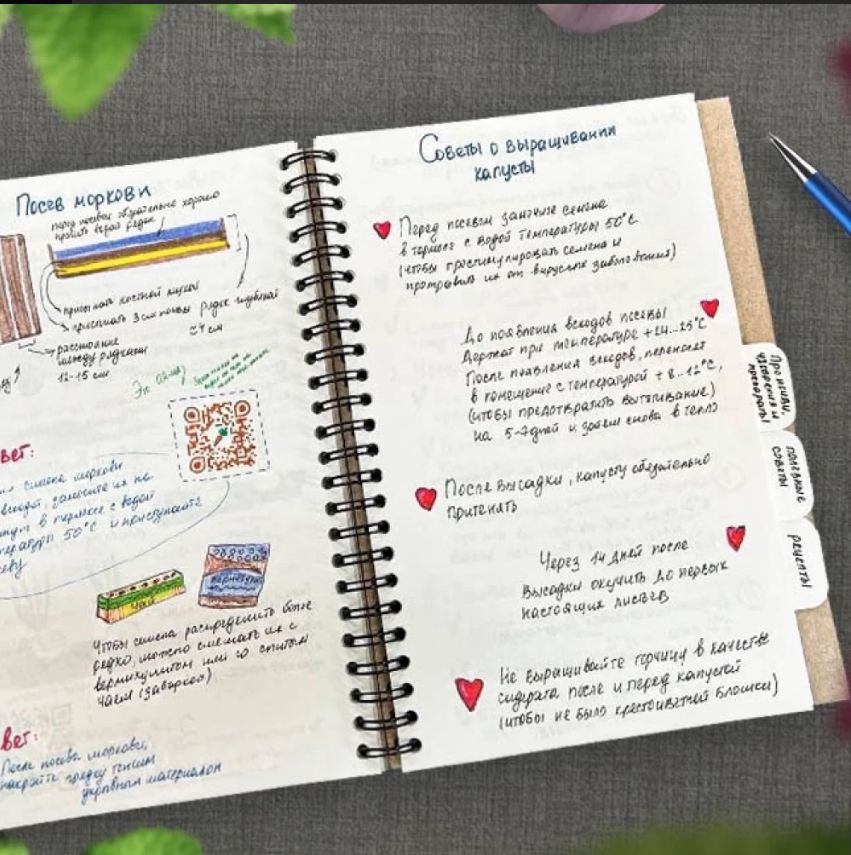 Посев моркови
перед посевом обязательно хорошо
пролить водой рядок
присыпать костной мукой
присыпать 3 см почвы
рядок глубиной
≈4 см
расстояние
между рядками
12-15 см
вет:
семена моркови
замочите их на
в термосе с водой
температуры 50°С и приступайте
севу
Чай
вермикулит
Чтобы семена распределить более
редко, можно смешать их с
вермикулитом или со спитым
чаем (заваркой)
вет:
После посева моркови,
накройте грядку тонким
укрывным материалом
Советы о выращивании
капусты
Перед посевом замочите семена
в термосе с водой температуры 50°С
(чтобы простимулировать семена и
протравить их от вирусных заболеваний)
До появления всходов посевы
держат при температуре
После появления всходов, переносят
в помещение с температурой +8..12°С,
(чтобы предотвратить вытягивание)
на 5-7 дней и затем снова в тепло
После высадки, капусту обязательно
притенять
Через 14 дней после
высадки окучить до первых
настоящих листьев
Не выращивайте горчицу в качестве
сидерата после и перед капустой
(чтобы не было крестоцветной блошки)
Про почву,
удобрения и
препараты
полезные
советы
рецепты